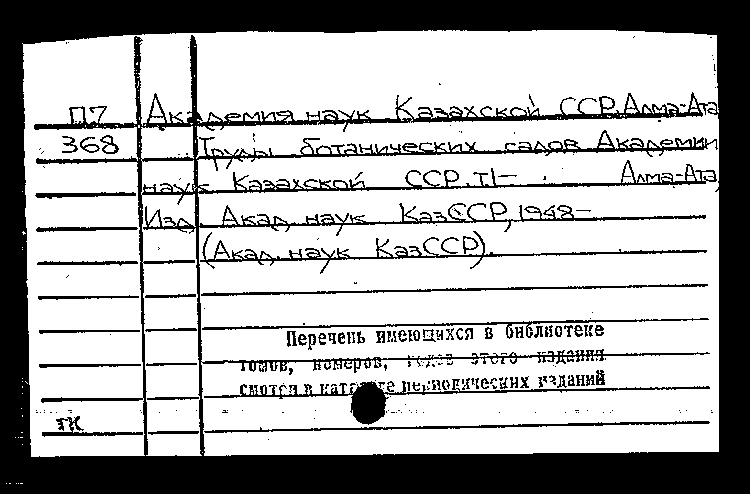 П7 Академия наук Казахской ССР, Алма-Ата
368 Труды ботанических садов Академии
наук Казахской ССР. т.1— Алма-Ата,
Изд. Акад. наук КазССР, 1948—
(Акад. наук КазССР).
Перечень имеющихся в библиотеке
томов, номеров, годов этого издания
смотри в каталоге периодических изданий
ТК